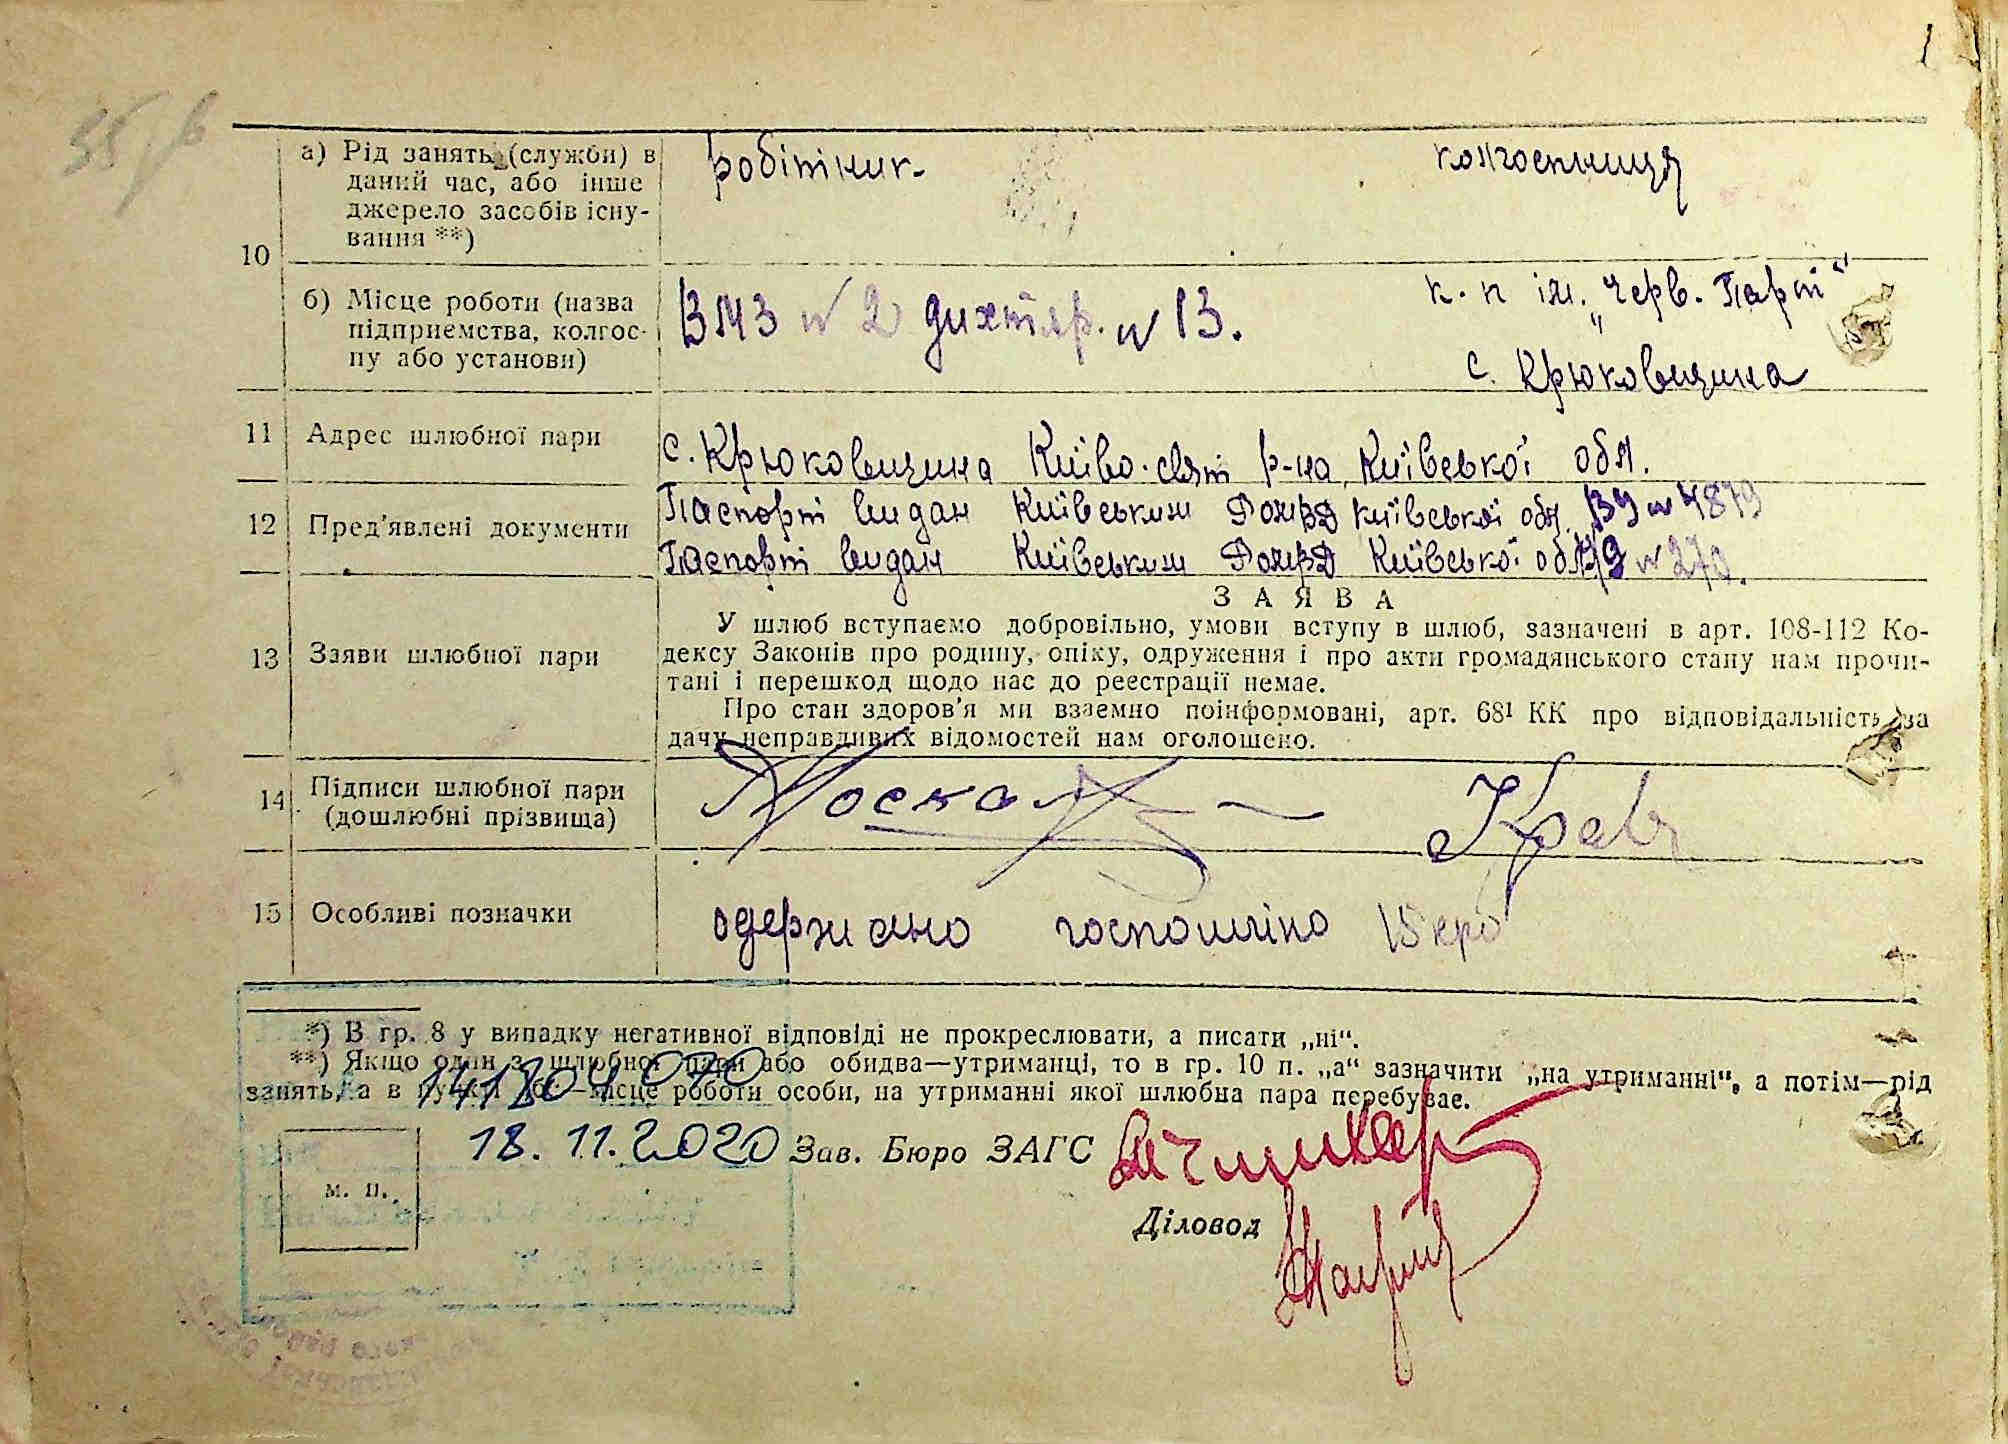 1
55
10
а) Рід занять (служби) в даний час, або інше джерело засобів існу- вання **)
робітник
колгоспниця
б) Місце роботи (назва підприємства, колгос- пу або установи)
ВМЗ № 2 дихтяр. № 13.
к. п ім. „Черв. Парт"
с. Крюковщина
11 Адрес шлюбної пари
с. Крюковщина Київо-свят р-на, Київської обл.
12 Пред'явлені документи
Паспорт видан Київським Київської обл. № 4879
Паспорт видан Київським Київської обл. № 270.
13 Заяви шлюбної пари
ЗАЯВА
У шлюб вступаємо добровільно, умови вступу в шлюб, зазначені в арт. 108-112 Ко-
дексу Законів про родину, опіку, одруження і про акти громадянського стану нам прочи-
тані і перешкод щодо нас до реєстрації немає.
Про стан здоров'я ми взаємно поінформовані, арт. 68¹ КК про відповідальність за
дачу неправдивих відомостей нам оголошено.
14 Підписи шлюбної пари (дошлюбні прізвища)
Москал
Крав
15 Особливі позначки
одержано госпошліно 15 крб
*) В гр. 8 у випадку негативної відповіді не прокреслювати, а писати „ні".
**) Якщо один з шлюбної пари або обидва—утриманці, то в гр. 10 п. „а" зазначити „на утриманні", а потім—рід
занять, а в пункті „б"—місце роботи особи, на утриманні якої шлюбна пара перебуває.
141804070
18.11.2020
Зав. Бюро ЗАГС
м. п.
Діловод